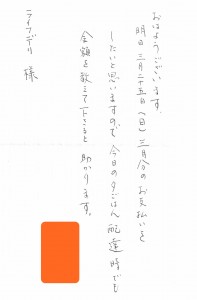 おはようございます。
明日三月二十五日(日)三月分のお支払いを
したいと思いますので、今日の夕ごはん配達時でも
金額を教えて下さると助かります。
ライフデリ様